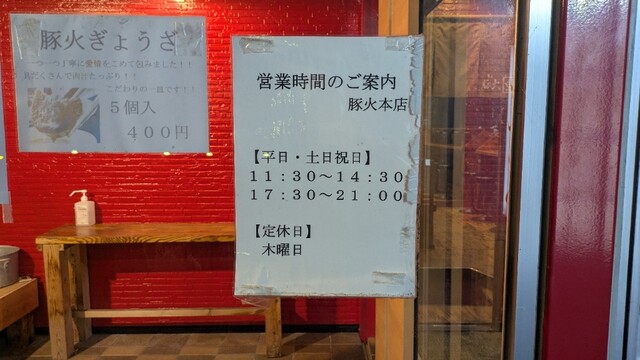 豚火ぎょうざ
一つ一つ丁寧に愛情をこめて包みました！！
具だくさんで肉汁たっぷり！！
こだわりの一皿です！！
５個入
４００円
営業時間のご案内
豚火本店
【平日・土日祝日】
１１：３０～１４：３０
１７：３０～２１：００
【定休日】
木曜日